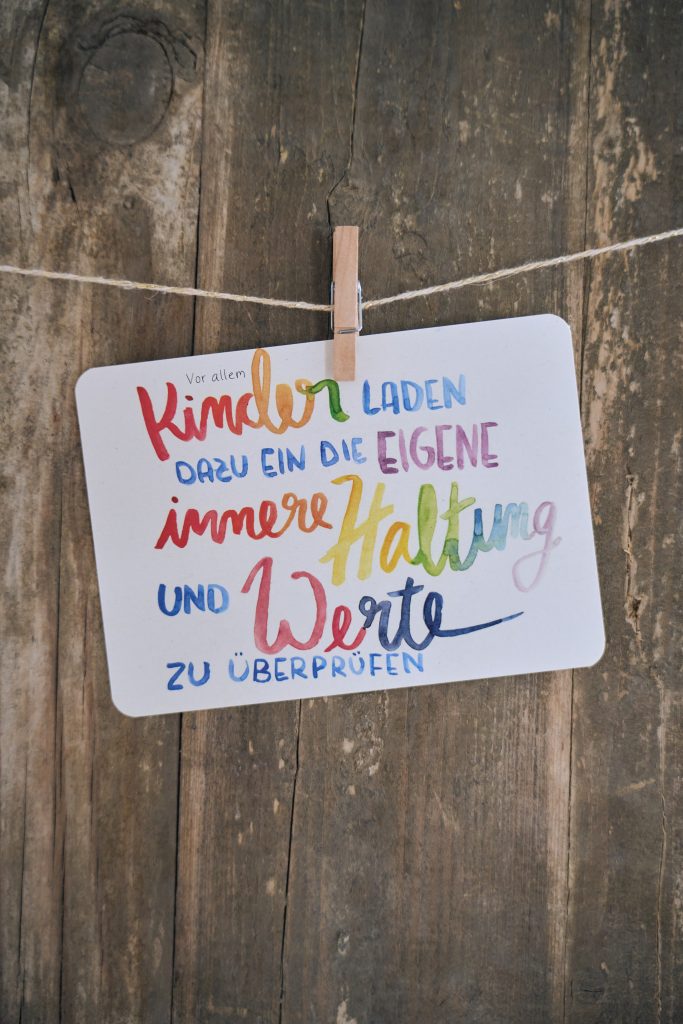 Vor allem
Kinder LADEN
DAZU EIN DIE EIGENE
innere Haltung
UND Werte
ZU ÜBERPRÜFEN